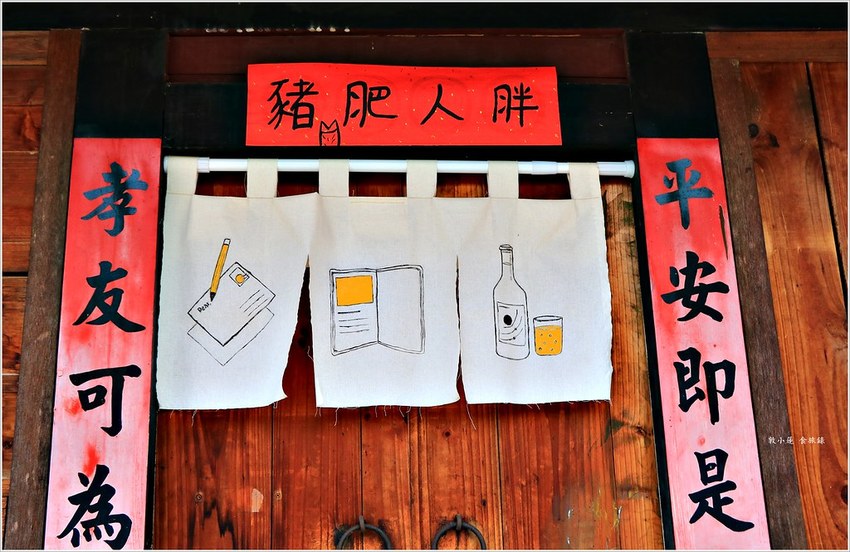 豬肥人胖
平安即是
孝友可為
Dear.
敦小蓮 食旅錄